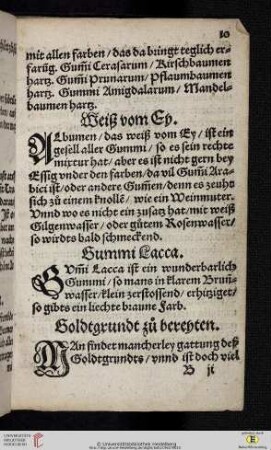 10
mit allen farben / das da bringt teglich er-
farüg. Gum̃i Cerasarum / Kirschbaumen
hartz. Gum̃i Prunarum / Pflaumbaumen
hartz. Gummi Amigdalarum / Mandel-
baumen hartz.
Weiß vom Ey.
ALbumen / das weiß vom Ey / ist ein
gesell aller Gummi / so es sein rechte
mixtur hat / aber es ist nicht gern bey
Essig vnder den farben / da vil Gum̃i Ara-
bici ist / oder andere Gum̃en / denn es zeuht
sich zů einem knollẽ / wie ein Weinmuter.
Vnnd wo es nicht ein zusatz hat / mit weiß
Gilgenwasser / oder gůtem Rosenwasser /
so wirdts bald schmeckend.
Gummi Lacca.
GVm̃i Lacca ist ein wunderbarlich
Gummi / so mans in klarem Bruñ-
wasser / klein zerstossend / erhitziget /
so gibts ein liechte braune Farb.
Goldtgrundt zů bereyten.
MAn findet mancherley gattung deß
Goldtgrundts / vnnd ist doch viel
B ij
© Universitätsbibliothek Heidelberg